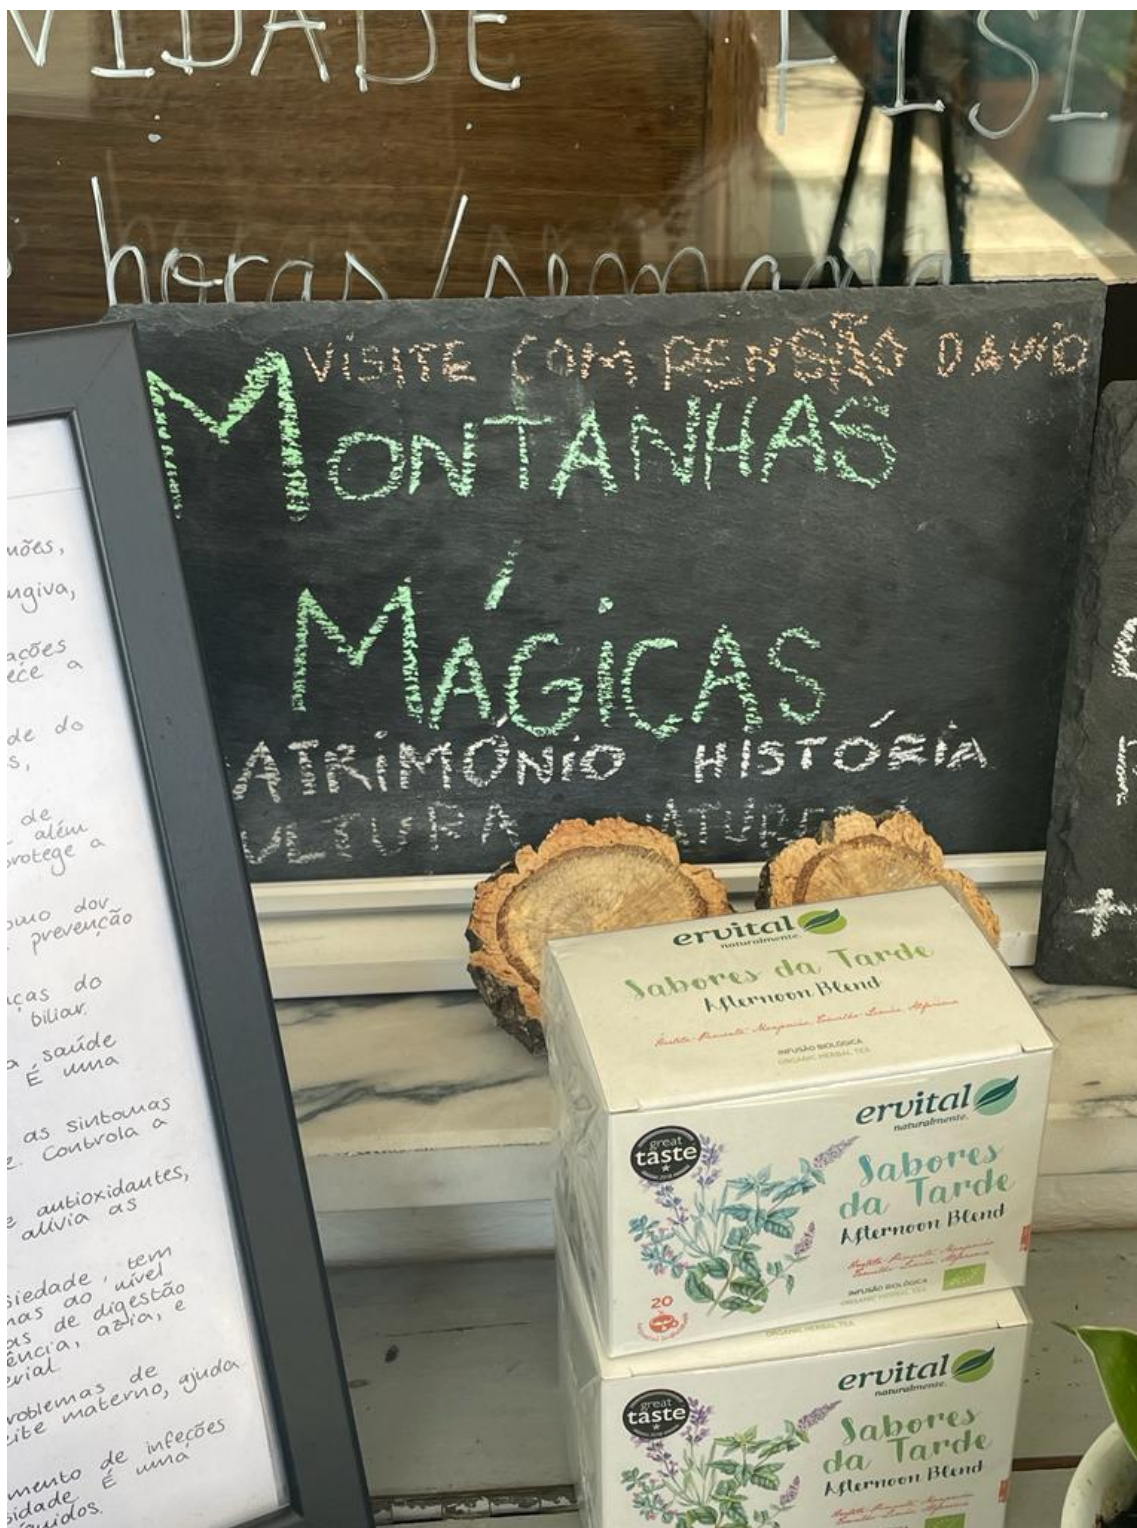 VIDADE FISI
horas/semana
VISITE COM PENSÃO DAVID
MONTANHAS
MÁGICAS
ATRIMÓNIO HISTÓRIA
ULTURA ATUREZA
mões,
ngiva,
ações
ece a
de do
s,
de
além
protege a
omo dor
prevenção
ças do
biliar.
a saúde
É uma
as sintomas
Controla a
e antioxidantes,
alivia as
siedade, tem
mas ao nível
as de digestão
ência, azia, e
erial
roblemas de
eite materno, ajuda
mento de infeções
sidade É uma
íquidos.
+
ervital
naturalmente.
Sabores da Tarde
Afternoon Blend
INFUSÃO BIOLÓGICA
ORGANIC HERBAL TEA
ervital
naturalmente.
great
taste
Sabores
da Tarde
Afternoon Blend
INFUSÃO BIOLÓGICA
ORGANIC HERBAL TEA
20
ORGANIC HERBAL TEA
ervital
naturalmente.
great
taste
Sabores
da Tarde
Afternoon Blend